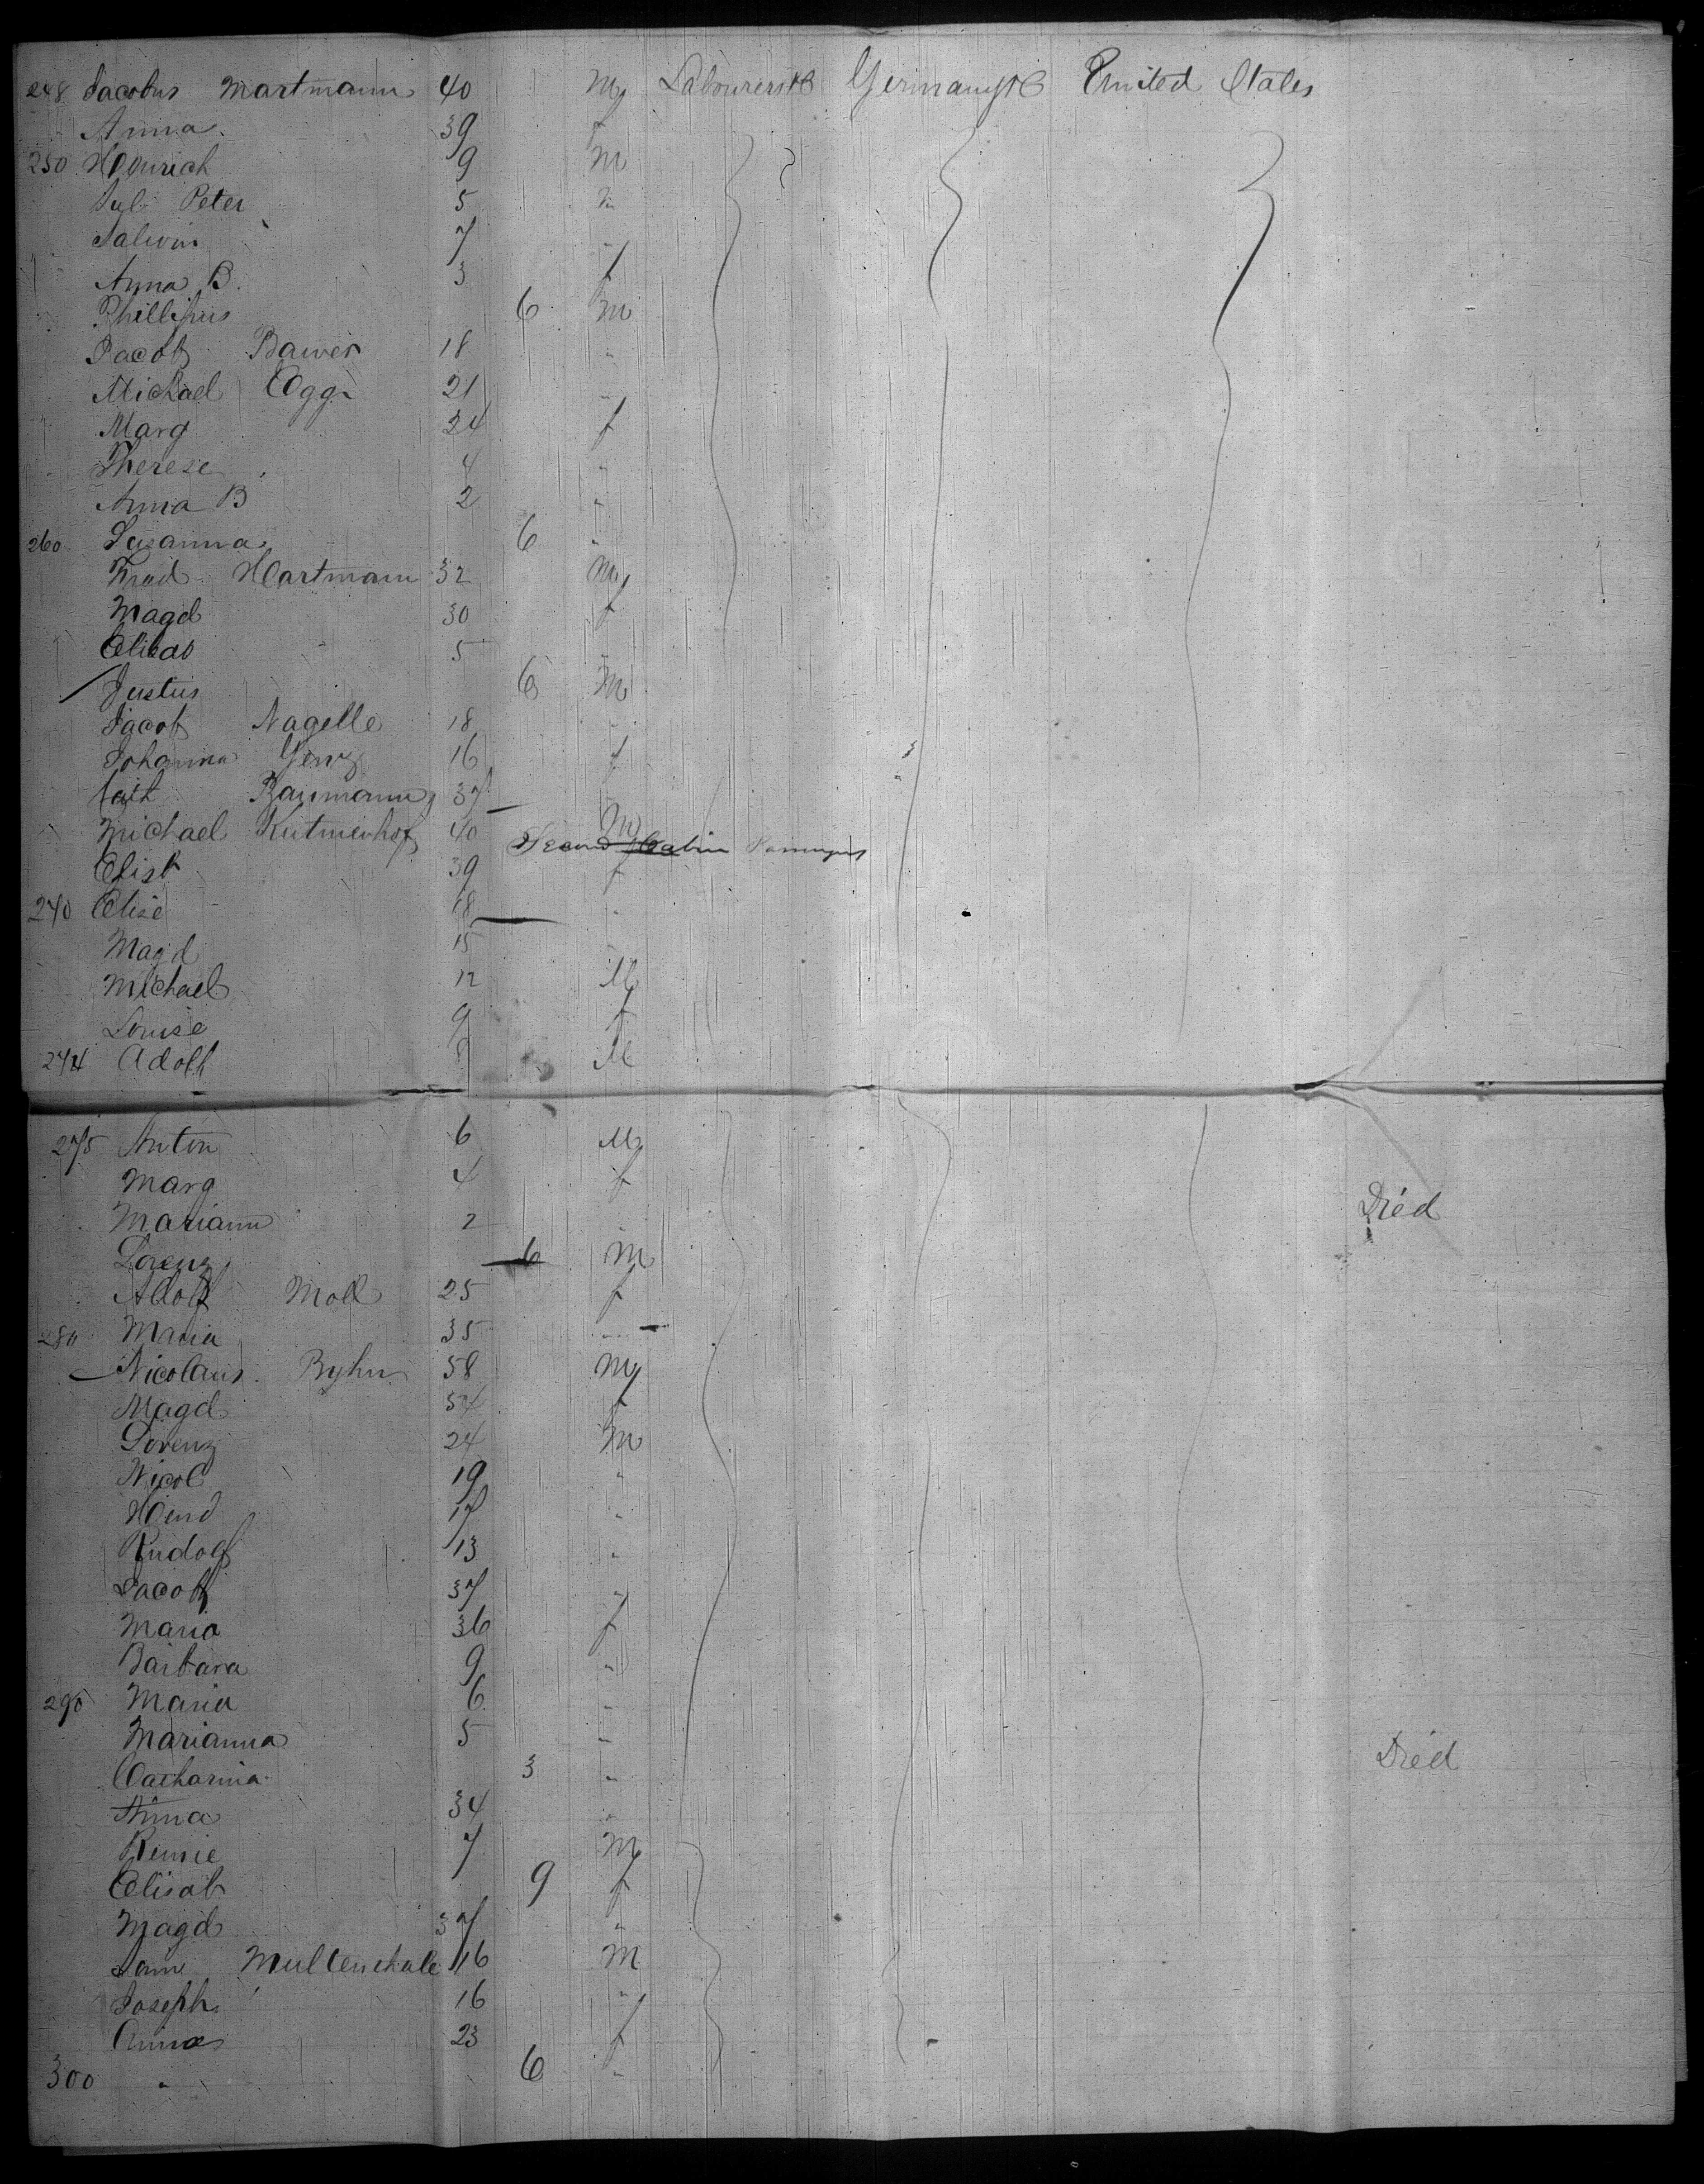 248 Jacobus Martmann 40 M Labourers &c Germany &c United States
Anna 39 f
250 Heinrich 9 M
Jul Peter 5 "
Salwin 7 "
Anna B. 3 f
Phillipus 6 M
Jacob Bawer 18 "
Michael Egg 21 "
Marg 24 f
Therese 4 "
Anna B 2 "
260 Susanna 6 "
Fried Hartmann 32 M
Magd 30 f
Elibas 5 "
Justus 6 M
Jacob Nagelle 18 "
Johanna Genz 16 f
Cath Baumann 37 "
Michael Kutmenhof 40 M Second Cabin
Elisb 39 f
270 Elise 18 "
Magd 15 "
Michael 12 M
Louise 9 f
274 Adolf 8 M
275 Anton 6 M
Marg 4 f
Mariann 2 " Died
Lorenz 6 M
Adolf Moll 25 f
280 Maria 35 "
Nicolaus Byhn 58 M
Magd 54 f
Lorenz 24 M
Nicol 19 "
Heind 17 "
Rudolf 13 "
Jacob 37 "
Maria 36 f
Barbara 9 "
290 Maria 6 "
Marianna 5 "
Catharina 3 " Died
Anna 34 "
Rennie 7 M
Elisab 9 f
Magd 37 "
Multenchale 16 M
Joseph 16 "
Anna 23 f
300 " 6 "